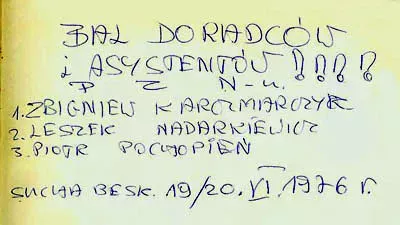 BAL DORADCÓW
i ASYSTENTÓW !!!!
P Z N-u.
1. ZBIGNIEW KARCZMARCZYK
2. LESZEK NADARKIEWICZ
3. PIOTR POCHOPIEŃ
SUCHA BESK. 19/20. VI. 1976 r.